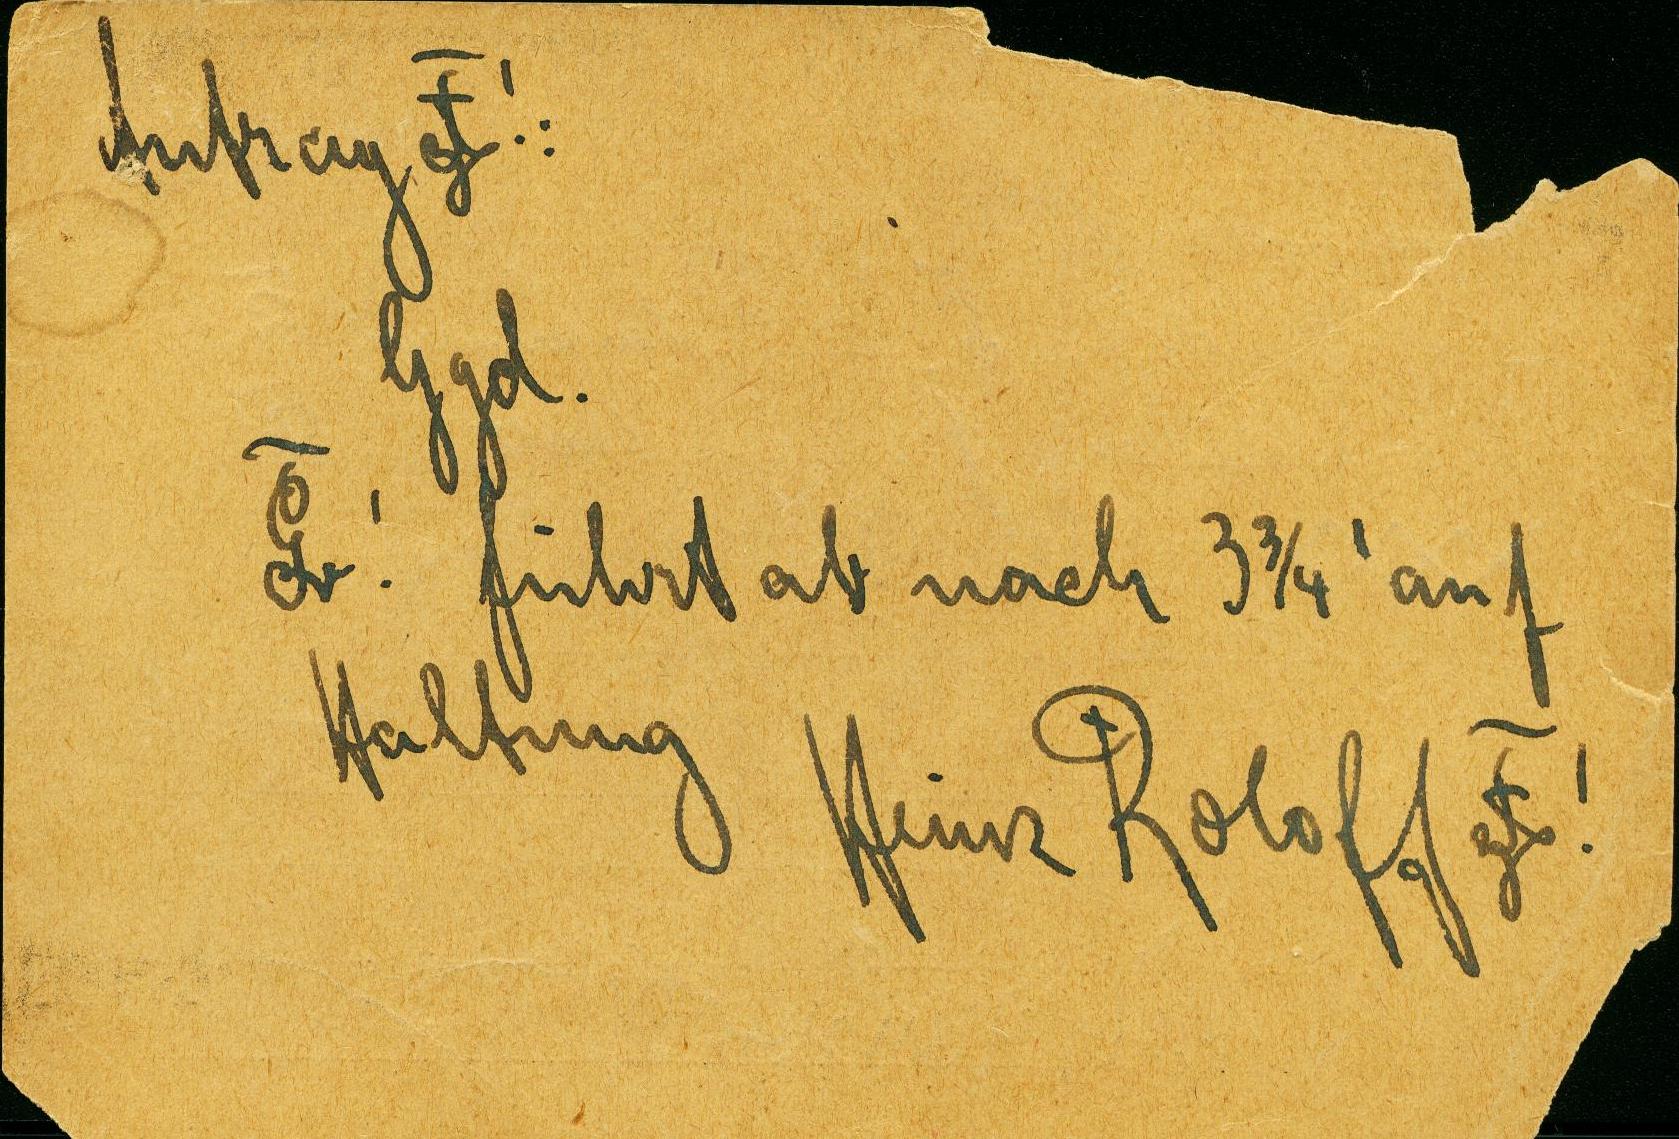 Antrag !:
Ggd.
! führt ab nach 3 3/4 ' auf
Haltung
Heinz Roloff !